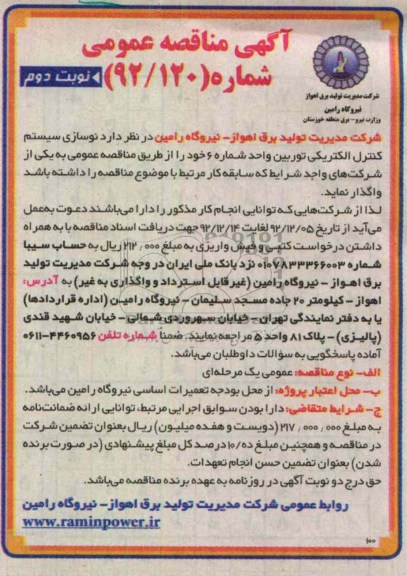 آگهی مناقصه عمومی
شماره (۹۲/۱۲۰) نوبت دوم
شرکت مدیریت تولید برق اهواز
نیروگاه رامین
وزارت نیرو - برق منطقه خوزستان
شرکت مدیریت تولید برق اهواز- نیروگاه رامین در نظر دارد نوسازی سیستم
کنترل الکتریکی توربین واحد شماره ۶ خود را از طریق مناقصه عمومی به یکی از
شرکت‌های واجد شرایط که سابقه کار مرتبط با موضوع مناقصه را داشته باشد
واگذار نماید.
لذا از شرکت‌هایی که توانایی انجام کار مذکور را دارا می‌باشند دعوت به‌عمل
می‌آید از تاریخ ۹۲/۱۲/۰۵ لغایت ۹۲/۱۲/۱۴ جهت دریافت اسناد مناقصه با به همراه
داشتن درخواست کتبی و فیش واریزی به مبلغ ۲۱۲/۰۰۰ ریال به حساب سیبا
شماره ۰۱۰۷۸۳۳۳۶۶۰۰۳ نزد بانک ملی ایران در وجه شرکت مدیریت تولید
برق اهواز - نیروگاه رامین (غیر قابل استرداد و واگذاری به غیر) به آدرس:
اهواز - کیلومتر ۲۰ جاده مسجد سلیمان - نیروگاه رامین (اداره قراردادها)
یا به دفتر نمایندگی تهران - خیابان سهروردی شمالی - خیابان شهید قندی
(پالیزی) - پلاک ۸۱ واحد ۵ مراجعه نمایند. ضمناً شماره تلفن ۴۴۶۰۹۵۶-۰۶۱۱
آماده پاسخگویی به سؤالات داوطلبان می‌باشد.
الف- نوع مناقصه: عمومی یک مرحله‌ای
ب- محل اعتبار پروژه: از محل بودجه تعمیرات اساسی نیروگاه رامین می‌باشد.
ج- شرایط متقاضی: دارا بودن سوابق اجرایی مرتبط، توانایی ارائه ضمانت‌نامه
به مبلغ ۲۱۷/۰۰۰/۰۰۰ (دویست و هفده میلیون) ریال بعنوان تضمین شرکت
در مناقصه و همچنین مبلغ ۱۰/ده درصد کل مبلغ پیشنهادی (در صورت برنده
شدن) بعنوان تضمین حسن انجام تعهدات.
حق درج دو نوبت آگهی در روزنامه به عهده برنده مناقصه می‌باشد.
روابط عمومی شرکت مدیریت تولید برق اهواز- نیروگاه رامین
www.raminpower.ir
۱۰۰